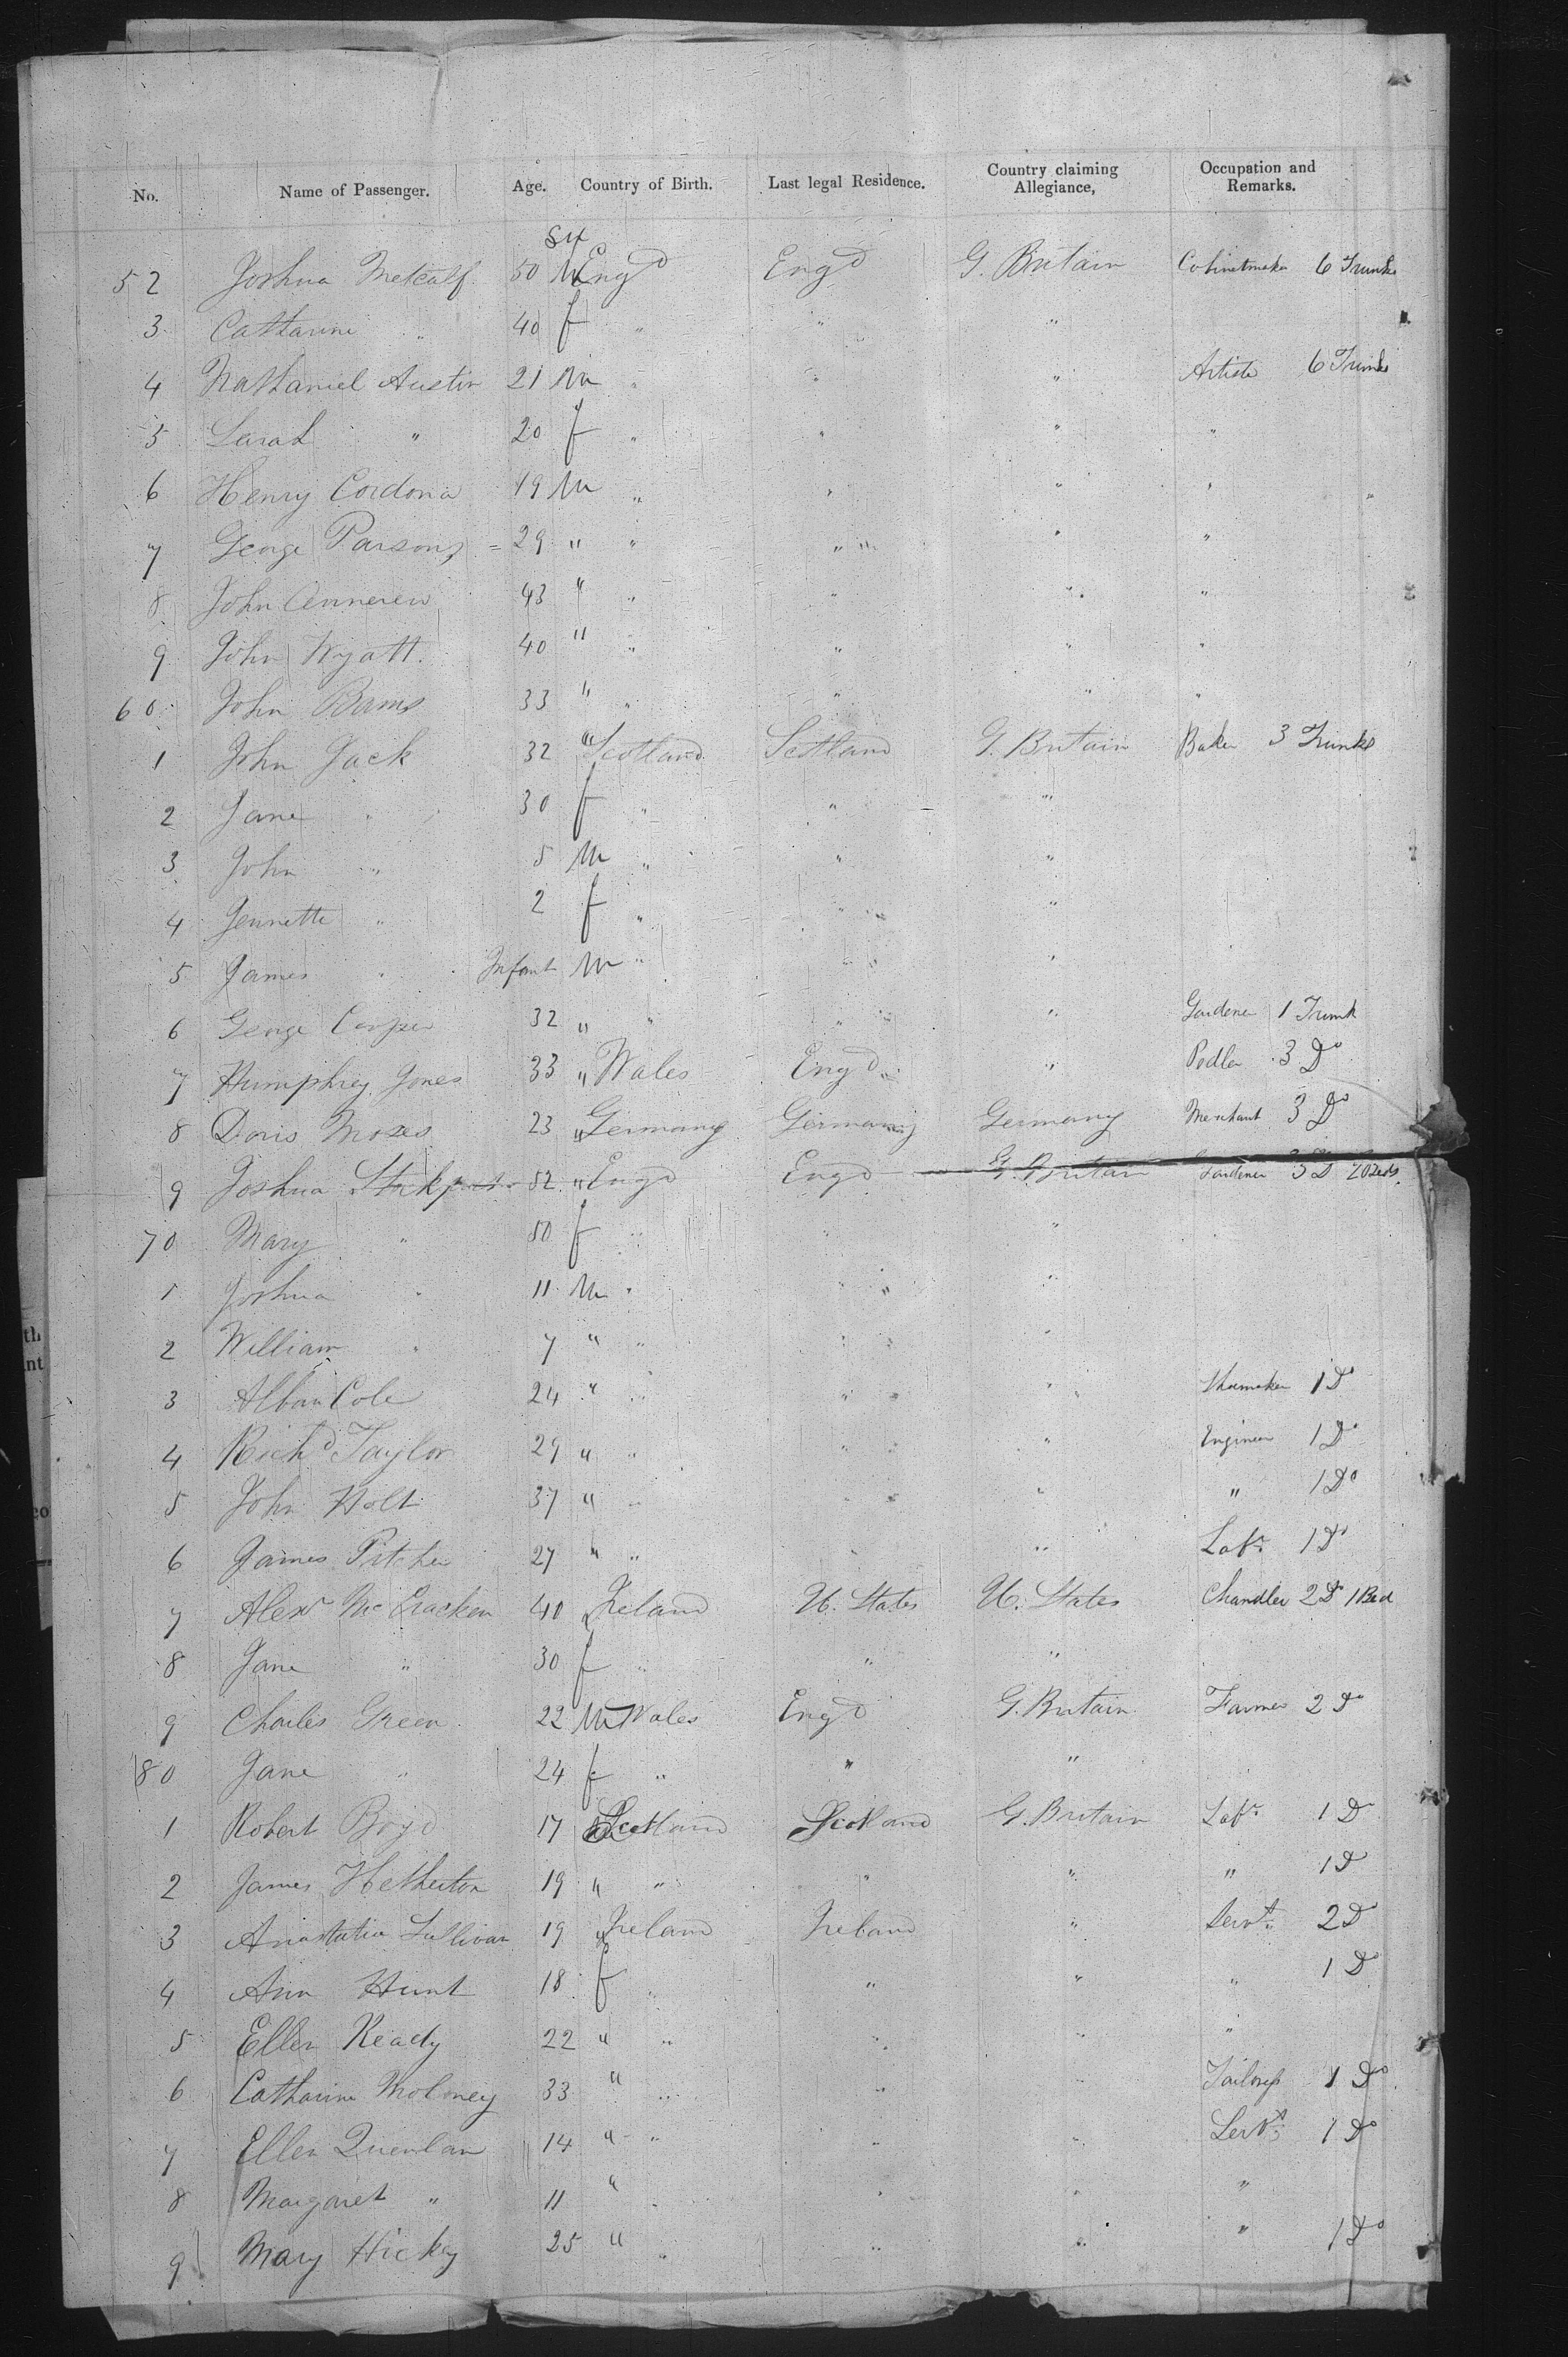 No. Name of Passenger. Age. Country of Birth. Last legal Residence. Country claiming Allegiance, Occupation and Remarks.
Sex
52 Joshua Metcalf 50 M Engd Engd G. Britain Cabinetmaker 6 Trunks
3 Catharine " 40 f " " "
4 Nathaniel Austin 21 M " " " Artiste 6 Trunks
5 Sarah " 20 f " " " "
6 Henry Cordona 19 M " " " " "
7 George Parsons = 29 " " " " "
8 John 43 " " " " "
9 John Wyatt. 40 " " " " "
60 John 33 " " " " "
1 John Jack 32 " Scotland Scotland G. Britain Baker 3 Trunks
2 Jane " 30 f " " "
3 John " 5 M " " "
4 Jennette " 2 f " " "
5 James " Infant M " " "
6 George Cooper 32 " " " " Gardener 1 Trunk
7 Humphrey Jones 33 " Wales Engd " Pedler 3 Do
8 Doris Moses 23 " Germany Germany Germany Merchant 3 Do
9 Joshua Stockport 52 " Engd Engd G. Britain Gardener 3 Do 2 Beds
70 Mary " 50 f " " "
1 Joshua " 11 M " " "
2 William " 7 " " " "
3 Alban Cole 24 " " " " Shoemaker 1 Do
4 Richd Taylor 29 " " " " Engineer 1 Do
5 John Holt 37 " " " " " 1 Do
6 James Pitcher 27 " " " " Labr 1 Do
7 Alexr McCracken 40 Ireland U. States U. States Chandler 2 Do 1 Bed
8 Jane " 30 f " " "
9 Charles Green 22 M Wales Engd G. Britain Farmer 2 Do
80 Jane " 24 f " " "
1 Robert Boyd 17 Scotland Scotland G. Britain Labr 1 Do
2 James Hetherton 19 " " " " " 1 Do
3 Anastatia Sullivan 19 " Ireland Ireland " Servt 2 Do
4 Ann Hunt 18 f " " " " 1 Do
5 Ellen Ready 22 " " " " "
6 Catharine Moloney 33 " " " " Tailoress 1 Do
7 Ellen Quenlan 14 " " " " Servt 1 Do
8 Margaret " 11 " " " " "
9 Mary Hickey 25 " " " " " 1 Do